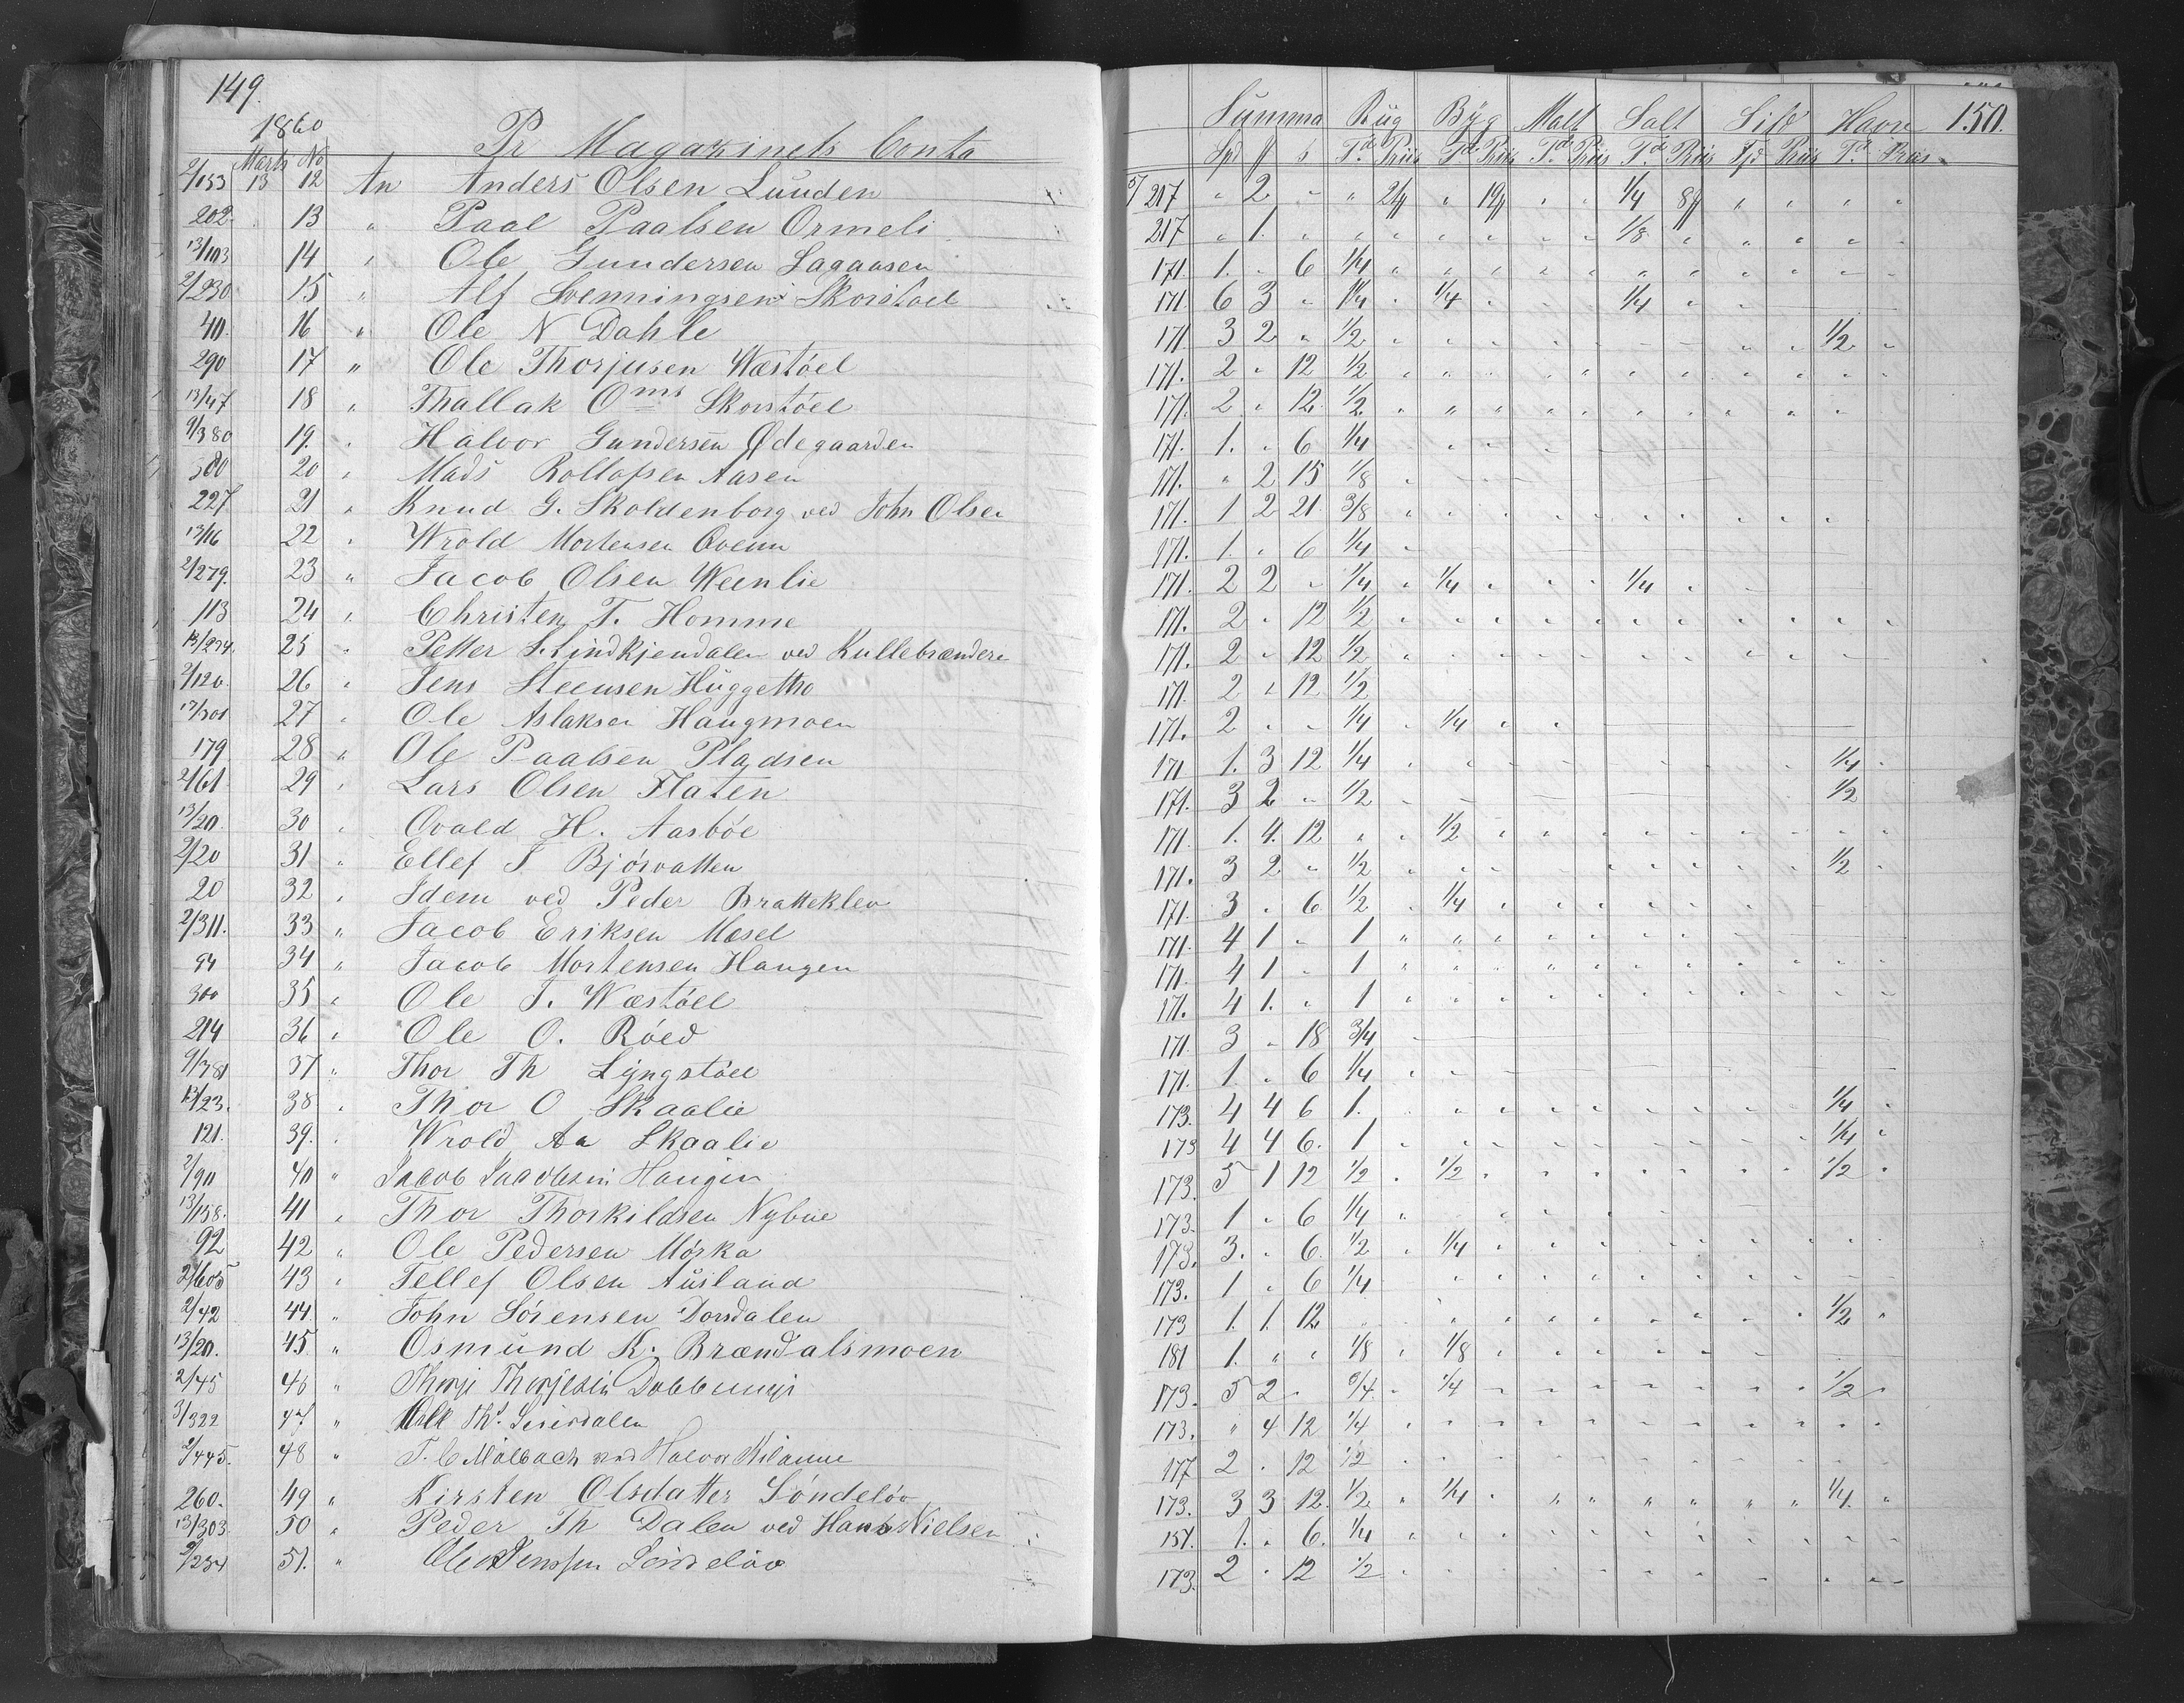 149.
1860
Pr Magazinets Conto
Marts No
2/153 13 12 An Anders Olsen Lunden
202 13 " Paal Paalsen Ormeli
13/103 14 " Ole Gundersen Lagaasen
2/230 15 " Alf Svenningsen Skorstoel
40. 16 " Ole N Dahle
290 17 " Ole Thorjusen Wæstöel
13/47 18 " Thallak Oms Skorstöel
9/380 19. " Halvor Gundersen Ødegaarden
380 20 " Mads Rollofsen Aasen
227 21 " Knud G. Skoldenborg ved John Olsen
13/16 22 " Wrold Mortensen Qvenn
2/279. 23 " Jacob Olsen Weenlie
113 24 " Christen T. Homme
13/274. 25 " Petter S. Lindkjendalen ved Kullebrændere
2/120. 26 " Jens Steensen Huggetho
13/301 27 " Ole Aslaksen Haugmoen
179 28 " Ole Paalsen Pladsen
2/61 29 " Lars Olsen Flaten
13/20. 30 " Ovald H. Aasböe
2/20 31 " Ellef S Björvatten
20 32 " Idem ved Peder Bratteklev
2/311. 33 " Jacob Eriksen Mæsel
94 34 " Jacob Mortensen Haugen
300 35 " Ole T. Wæstöel
214 36 " Ole O. Röed
9/381 37 " Thor Th Lyngstöel
13/23. 38 " Thor O Skaalie
121. 39. " Wrold Aa Skaalie
2/90 40 " Jacob Jacobsen Haugen
13/158. 41 " Thor Thorkildsen Nybue
92 42 " Ole Pedersen Mörka
2/605 43 " Tellef Olsen Ausland
2/42 44 " John Sörensen Dorsdalen
13/20. 45. " Osmund K. Brændalsmoen
2/45 46 " Thorje Thorjesen
3/322 47. " Th.
2/445. 48 " T. C Mölbach ved Halvor
260. 49 " Kirsten Olsdatter Söndelöv
13/303. 50 " Peder Th Dalen ved Hans Nielsen
2/234 51. " Ole Jenssen Söndelöv
150.
Summa Rug Byg Malt Salt Sild Havre
Spd ß Td Priis Td Priis Td Priis Td Priis Td Priis Td Priis
5/217 " 2 " " 21 " 19 " " 1/4 8 " " " "
217 " 1. " " " " " " " 1/8 " " " " "
171 1. " 6 1/4
171 6 3 " 1 1/4 " 1/4 " " " 1/4
171 3 2 " 1/2 1/2
171. 2 " 12 1/2
171. 2 " 12. 1/2
171. 1. " 6 1/4
171. " 2 15 1/8
171. 1 2 21. 3/8
171. 1. " 6 1/4
171. 2 2 " 1/4 " 1/4 " " " 1/4
171. 2 " 12 1/2
171. 2 " 12 1/2
171. 2 " 12 1/2
171. 2 " " 1/4 " 1/4
171 1. 3 12 1/4 1/4
171. 3 2 " 1/2 1/2
171. 1. 4. 12 " " 1/2
171. 3 2 " 1/2 1/2
171. 3 " 6 1/2 " 1/4
171. 4 1 " 1
171. 4 1 " 1
171. 4 1. " 1
171 3 " 18 3/4
171. 1. " 6 1/4
173. 4 4 6 1. 1/4
173 4 4 6. 1 1/4
173. 5 1 12 1/2 " 1/2 1/2
173. 1 " 6 1/4
173. 3. " 6. 1/2 " 1/4
173. 1 " 6 1/4
173 1. 1. 12 1/2
181 1. " " 1/8 " 1/8
173. 5 2 " 3/4 " 1/4 1/2
173. " 4 12 1/4
177 2 " 12 1/2
173. 3 3 12. 1/2 " 1/4 1/4
157. 1. " 6. 1/4
173. 2 " 12 1/2